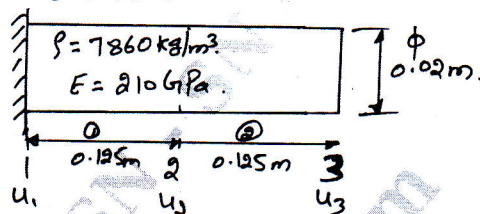 ρ = 7860 kg/m³.
E = 210 GPa.
ϕ
0.02m.
① ②
0.125m 2 0.125m 3
u₁ u₂ u₃